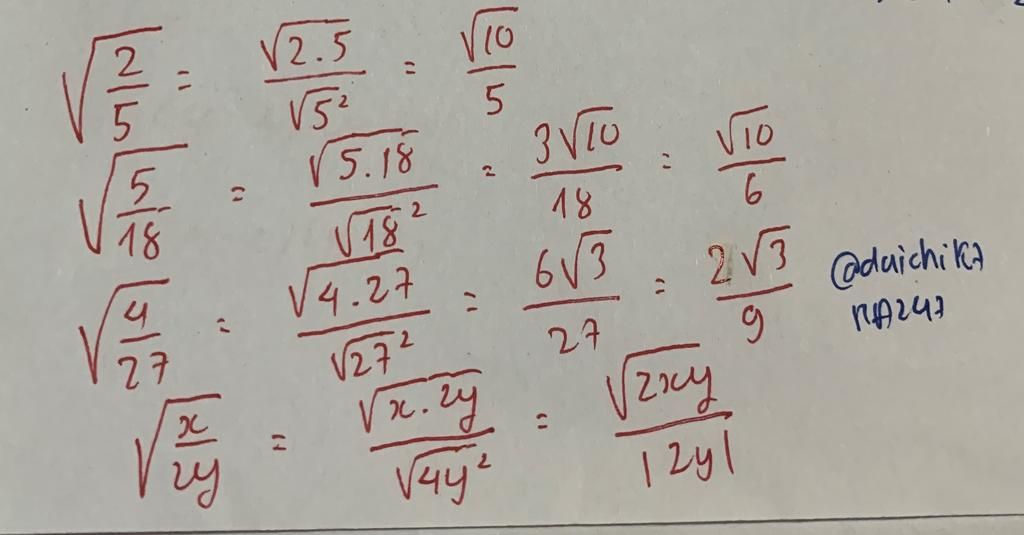 √(2/5) = √2.5/√5² = √10/5
√(5/18) = √5.18/√18² = 3√10/18 = √10/6
√(4/27) = √4.27/√27² = 6√3/27 = 2√3/9
√(x/2y) = √x.2y/√4y² = √2xy/|2y|